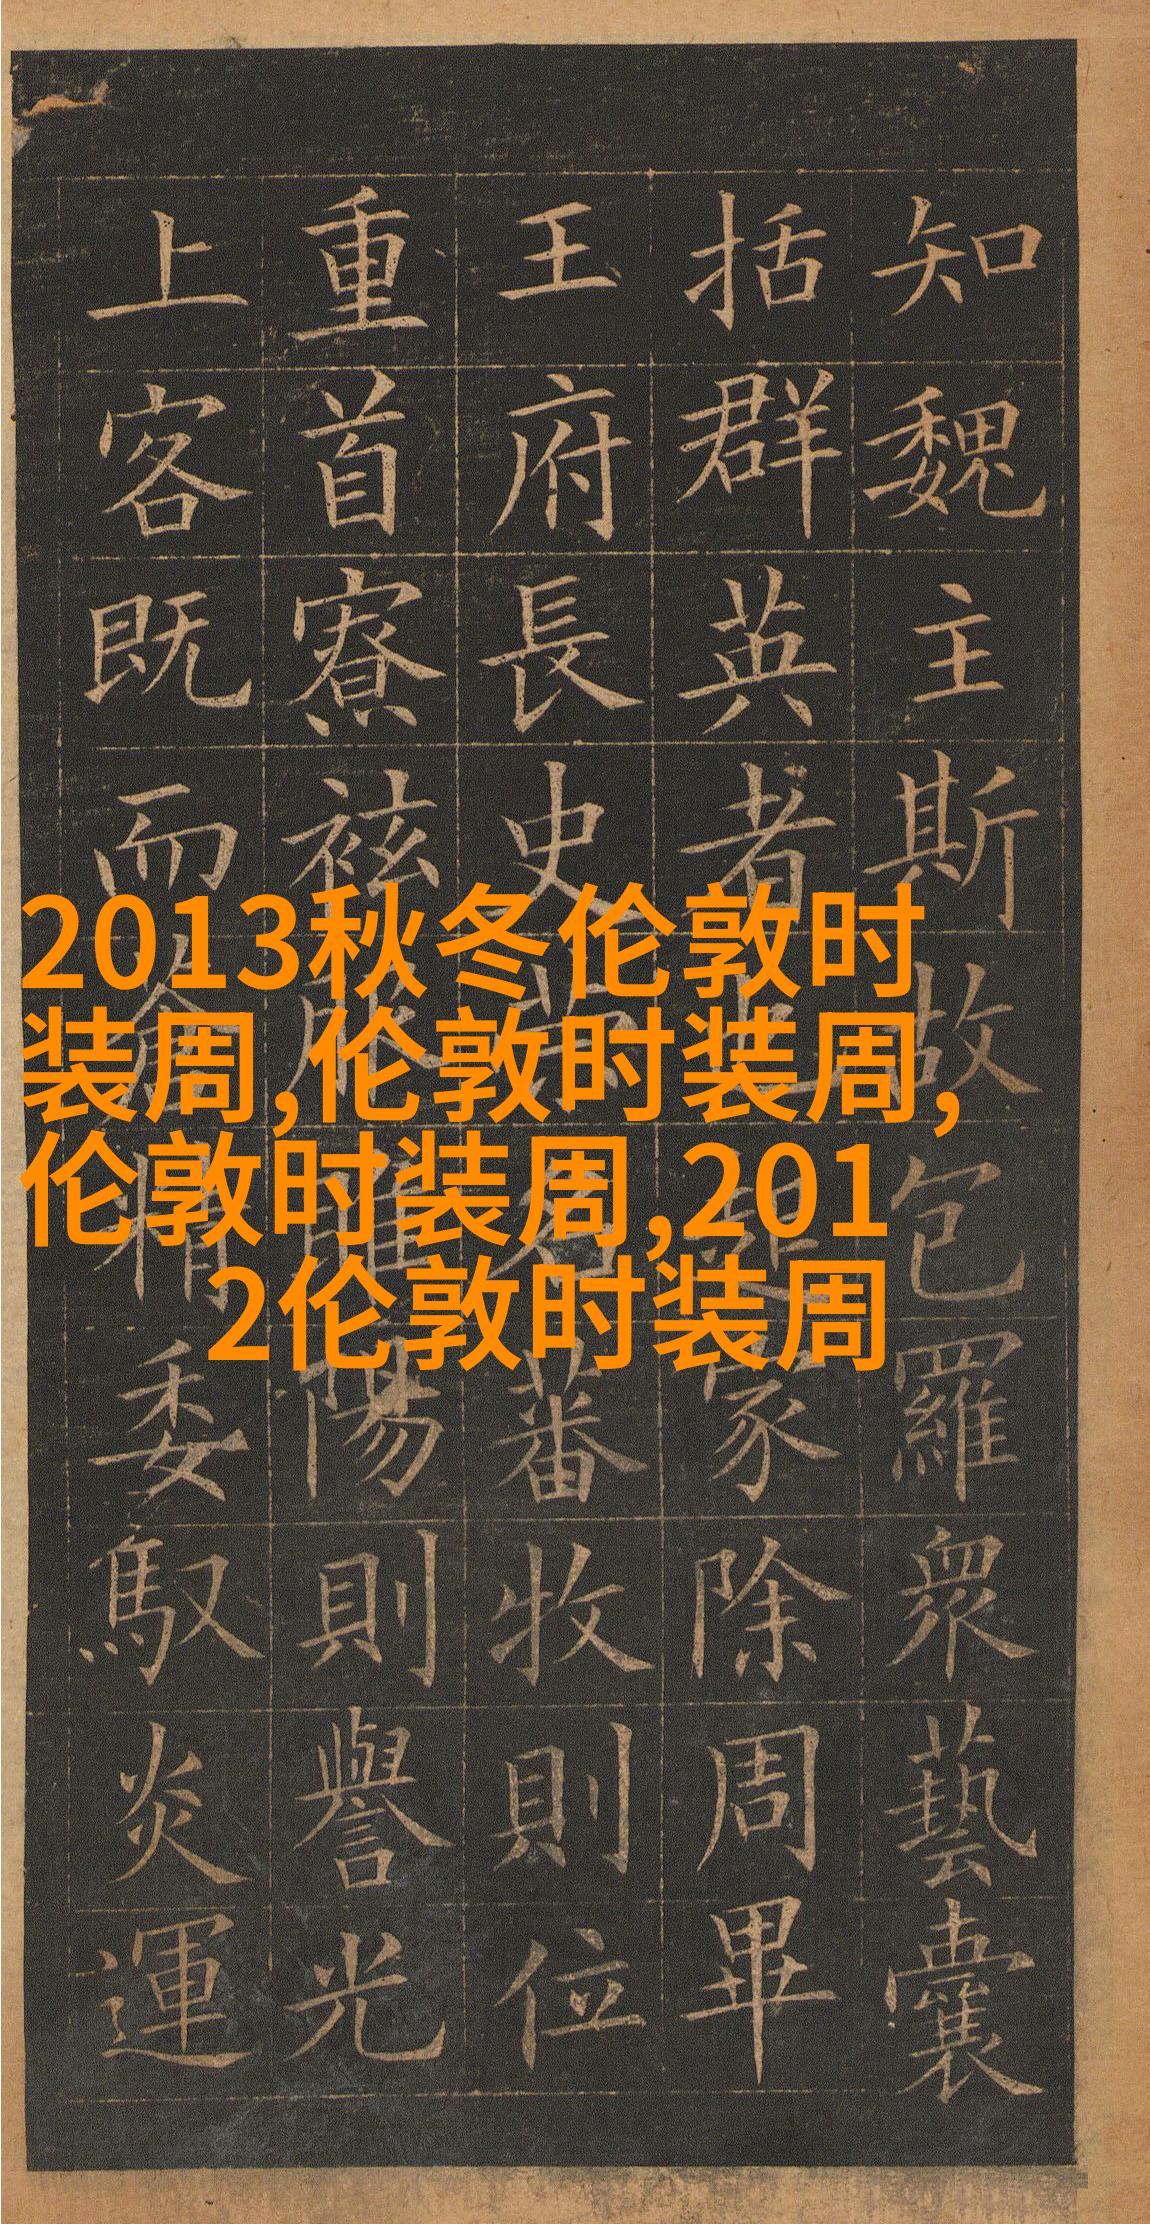 2013秋冬伦敦时
装周,伦敦时装周,
伦敦时装周,201
2伦敦时装周
知魏主斯故包羅衆藝囊
括群英者也起家除周畢
王府長史蕃牧則位
重首寮袨服睢陽則譽光
上客既而蒼精委馭炎運